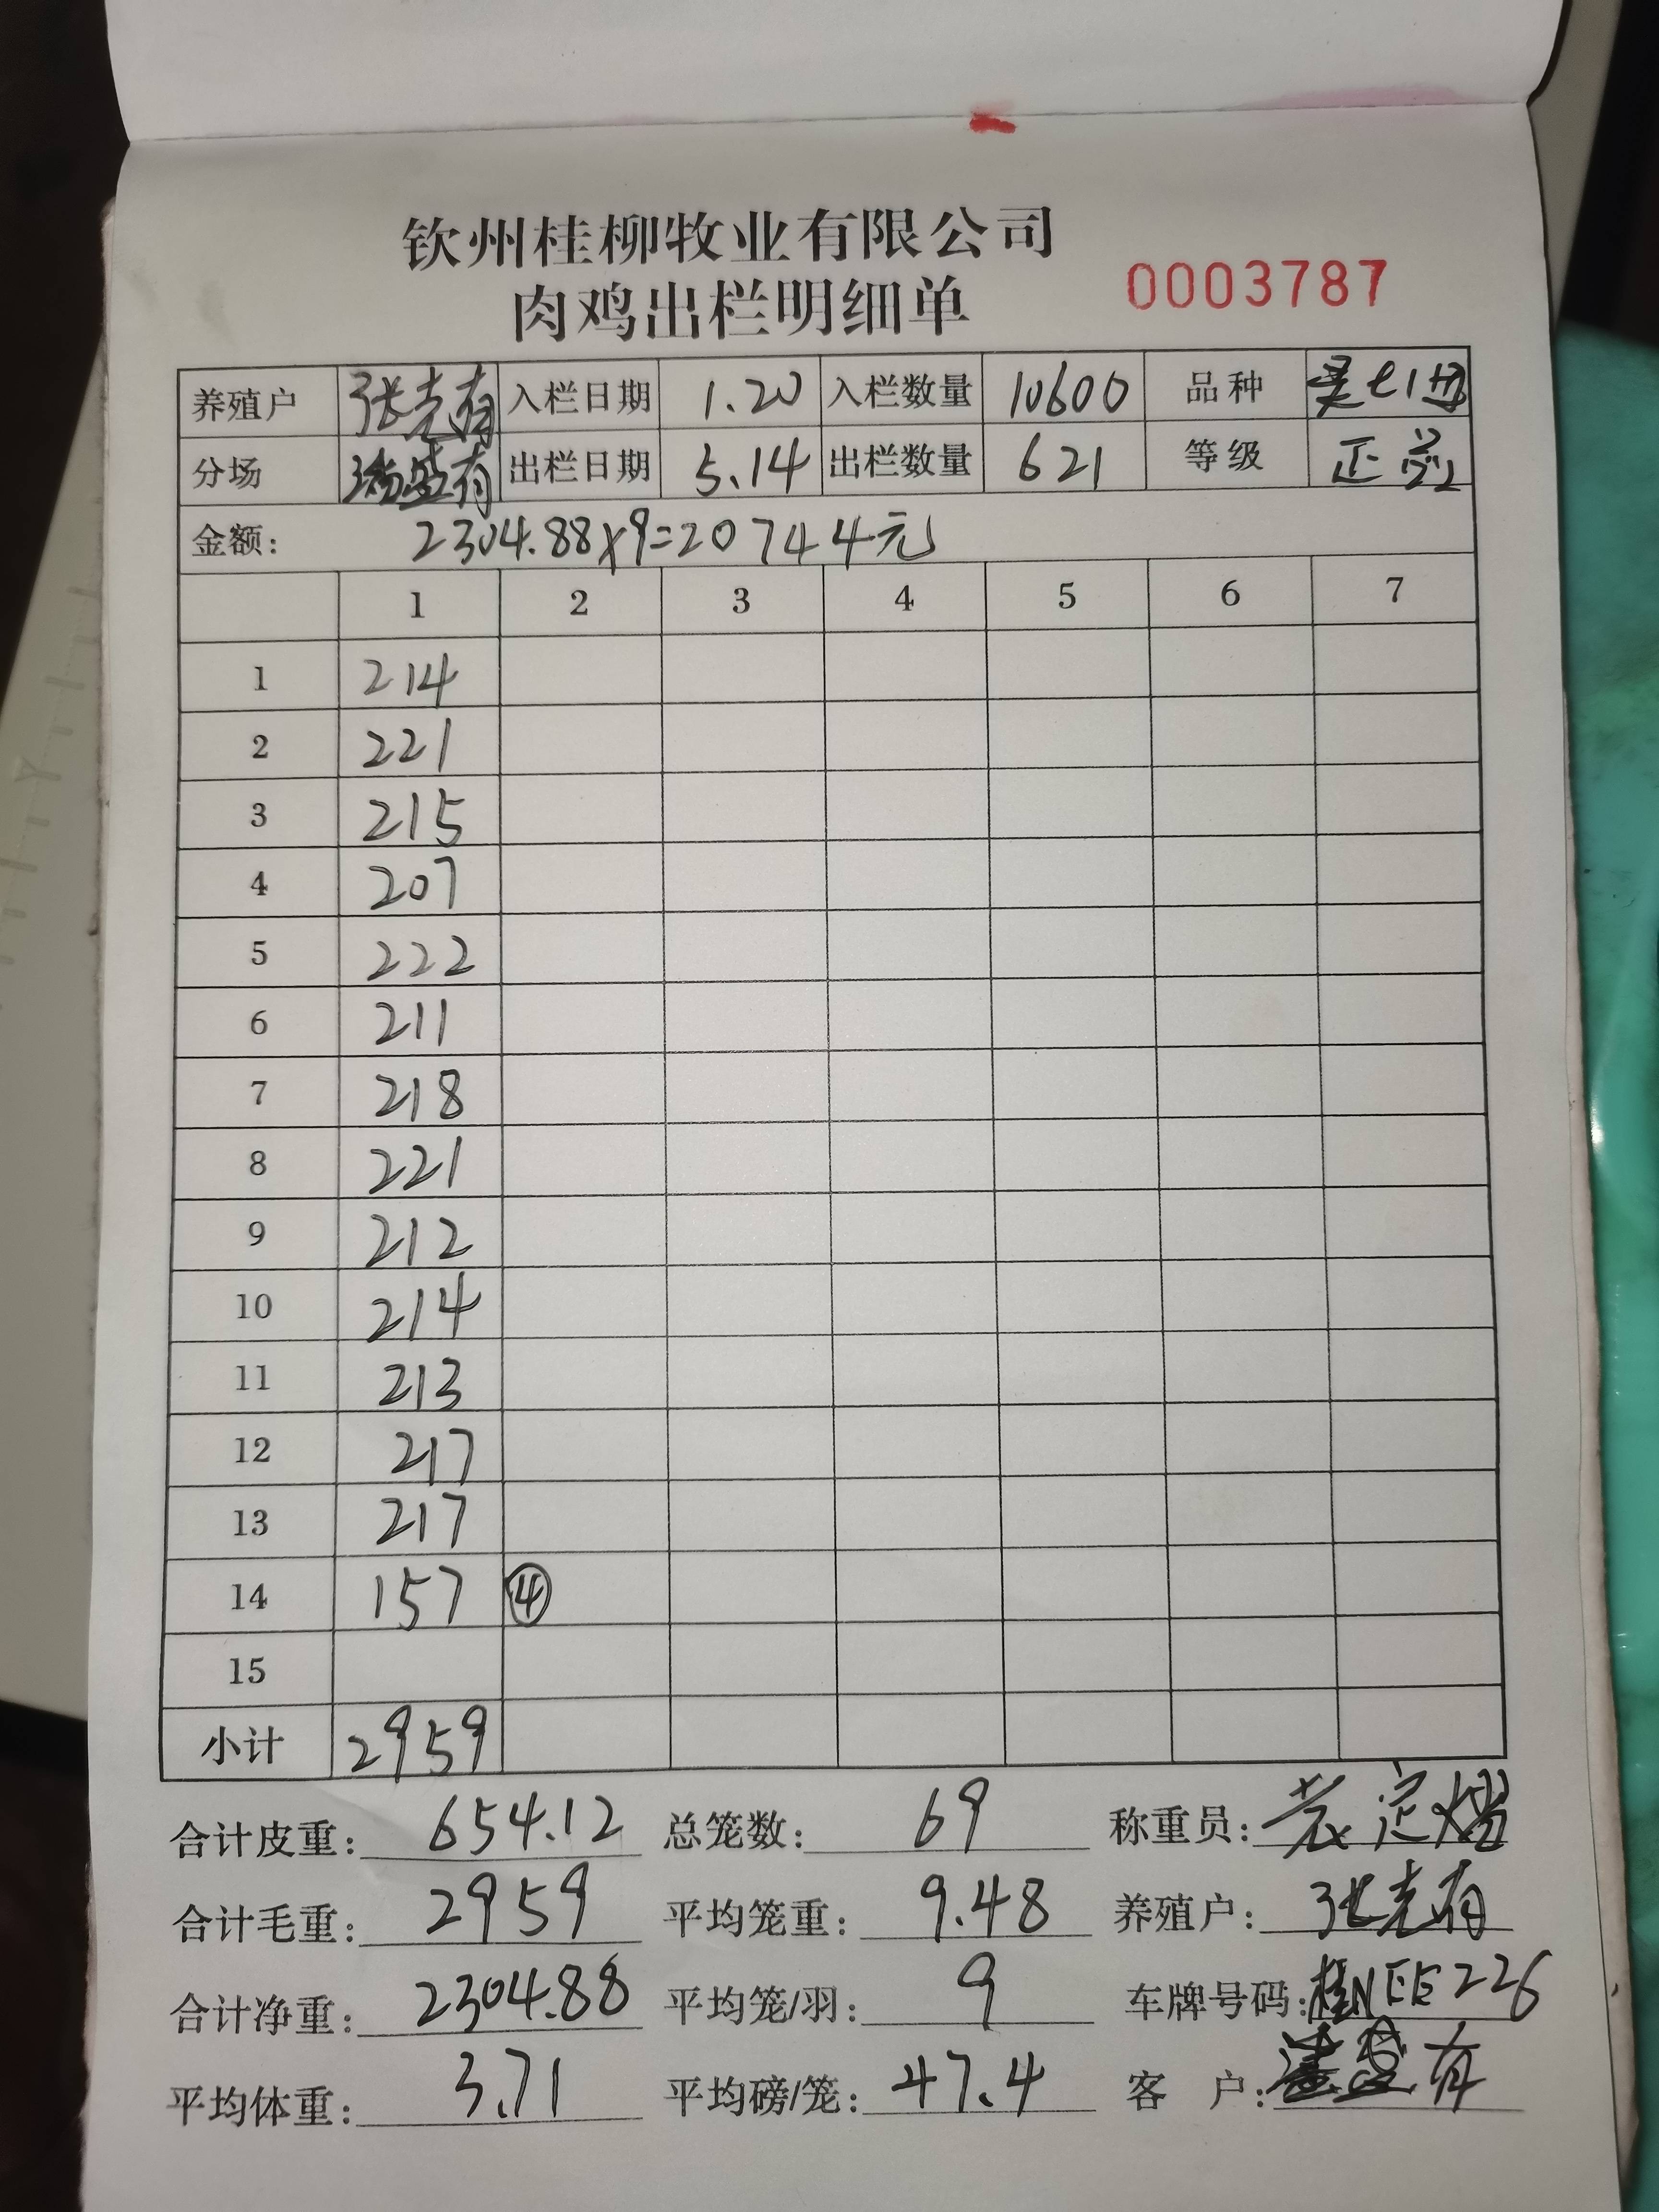 钦州桂柳牧业有限公司
肉鸡出栏明细单 0003787
养殖户 张克有 入栏日期 1.20 入栏数量 10600 品种
分场 出栏日期 5.14 出栏数量 621 等级 正
金额: 2304.88×9=20744元
1 2 3 4 5 6 7
1 214
2 221
3 215
4 207
5 222
6 211
7 218
8 221
9 212
10 214
11 213
12 217
13 217
14 157 ④
15
小计 2959
合计皮重: 654.12 总笼数: 69 称重员:
合计毛重: 2959 平均笼重: 9.48 养殖户: 张克有
合计净重: 2304.88 平均笼/羽: 9 车牌号码: 桂NEE226
平均体重: 3.71 平均磅/笼: 47.4 客 户: 有